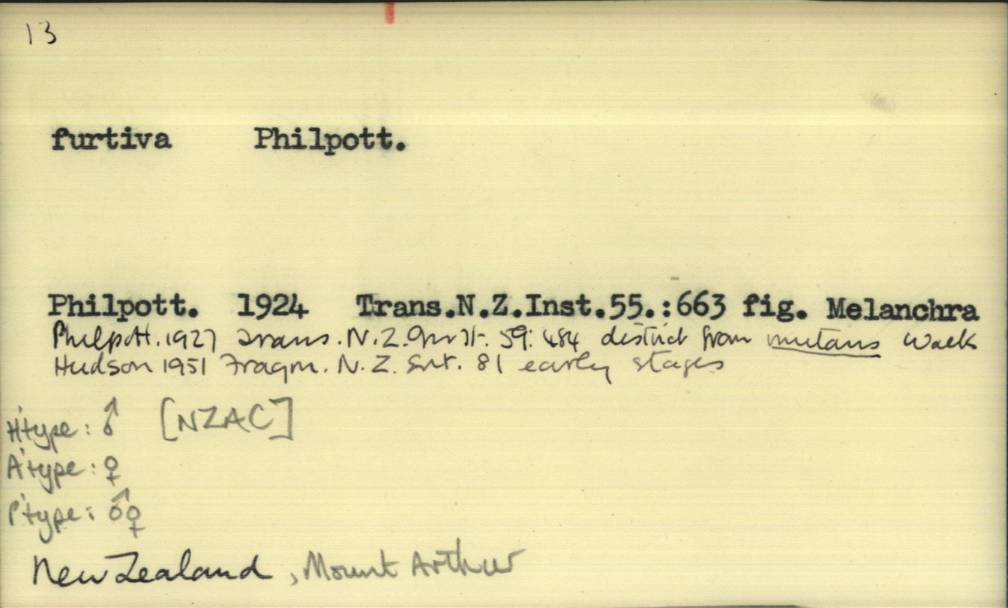 13
furtiva Philpott.
Philpott. 1924 Trans.N.Z.Inst.55.:663 fig. Melanchra
Philpott. 1927 Trans. N.Z. Inst. 59: 484 distinct from mutans Walk
Hudson 1951 Fragm. N.Z. Ent. 81 early stages
H'type: ♂ [NZAC]
A'type: ♀
P'type: ♂♀
New Zealand, Mount Arthur